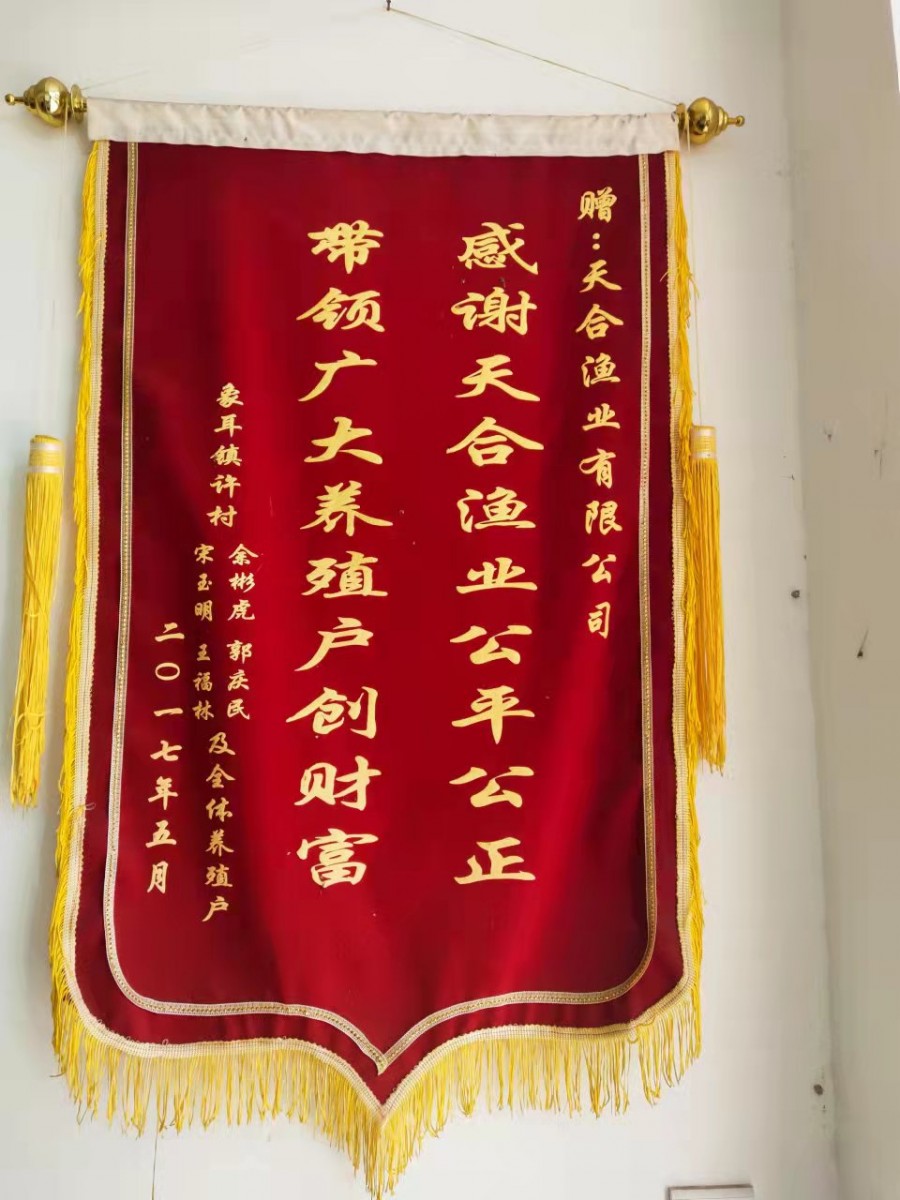 赠：天合渔业有限公司
感谢天合渔业公平公正
带领广大养殖户创财富
象耳镇许村
余彬虎 郭庆民
宋玉明 王福林
及全体养殖户
二〇一七年五月